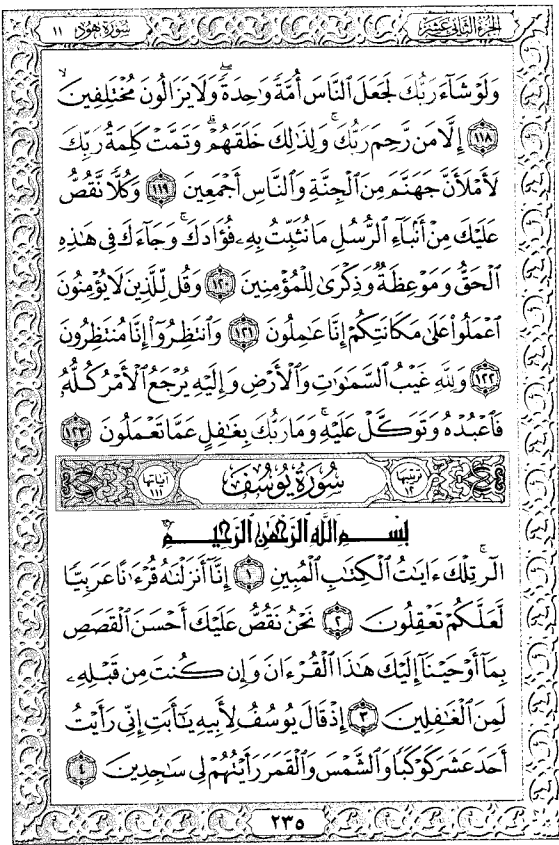 سورة هود ١١ الجزء الثاني عشر
وَلَوْ شَآءَ رَبُّكَ لَجَعَلَ ٱلنَّاسَ أُمَّةً وَٰحِدَةً ۖ وَلَا يَزَالُونَ مُخْتَلِفِينَ
١١٨ إِلَّا مَن رَّحِمَ رَبُّكَ ۚ وَلِذَٰلِكَ خَلَقَهُمْ ۗ وَتَمَّتْ كَلِمَةُ رَبِّكَ
لَأَمْلَأَنَّ جَهَنَّمَ مِنَ ٱلْجِنَّةِ وَٱلنَّاسِ أَجْمَعِينَ ١١٩ وَكُلًّا نَّقُصُّ
عَلَيْكَ مِنْ أَنۢبَآءِ ٱلرُّسُلِ مَا نُثَبِّتُ بِهِۦ فُؤَادَكَ ۚ وَجَآءَكَ فِى هَٰذِهِ
ٱلْحَقُّ وَمَوْعِظَةٌ وَذِكْرَىٰ لِلْمُؤْمِنِينَ ١٢٠ وَقُل لِّلَّذِينَ لَا يُؤْمِنُونَ
ٱعْمَلُوا۟ عَلَىٰ مَكَانَتِكُمْ إِنَّا عَٰمِلُونَ ١٢١ وَٱنتَظِرُوٓا۟ إِنَّا مُنتَظِرُونَ
١٢٢ وَلِلَّهِ غَيْبُ ٱلسَّمَٰوَٰتِ وَٱلْأَرْضِ وَإِلَيْهِ يُرْجَعُ ٱلْأَمْرُ كُلُّهُۥ
فَٱعْبُدْهُ وَتَوَكَّلْ عَلَيْهِ ۚ وَمَا رَبُّكَ بِغَٰفِلٍ عَمَّا تَعْمَلُونَ ١٢٣
ترتيبها ١٢ سُورَةُ يُوسُفَ آياتها ١١١
بِسْمِ ٱللَّهِ ٱلرَّحْمَٰنِ ٱلرَّحِيمِ
الٓر ۚ تِلْكَ ءَايَٰتُ ٱلْكِتَٰبِ ٱلْمُبِينِ ١ إِنَّآ أَنزَلْنَٰهُ قُرْءَٰنًا عَرَبِيًّا
لَّعَلَّكُمْ تَعْقِلُونَ ٢ نَحْنُ نَقُصُّ عَلَيْكَ أَحْسَنَ ٱلْقَصَصِ
بِمَآ أَوْحَيْنَآ إِلَيْكَ هَٰذَا ٱلْقُرْءَانَ وَإِن كُنتَ مِن قَبْلِهِۦ
لَمِنَ ٱلْغَٰفِلِينَ ٣ إِذْ قَالَ يُوسُفُ لِأَبِيهِ يَٰٓأَبَتِ إِنِّى رَأَيْتُ
أَحَدَ عَشَرَ كَوْكَبًا وَٱلشَّمْسَ وَٱلْقَمَرَ رَأَيْتُهُمْ لِى سَٰجِدِينَ ٤
٢٣٥